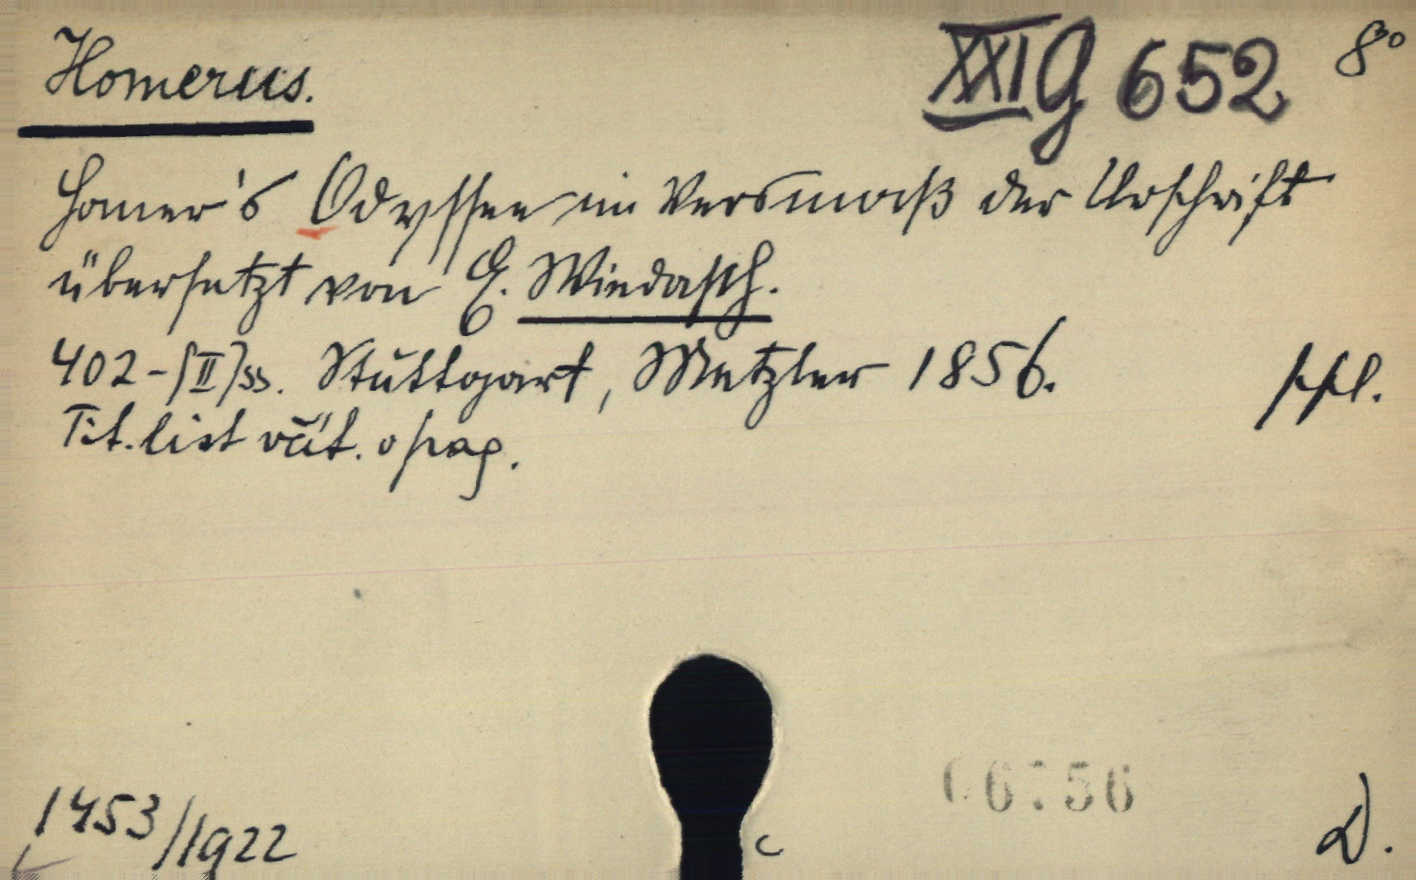 Homerus.
XXI G 652 8°
Homer's Odyssee im Versmaß der Urschrift
übersetzt von E. Wiedasch.
402-[II]ss. Stuttgart, Metzler 1856. ppl.
Tit. list
1453/1922
D.